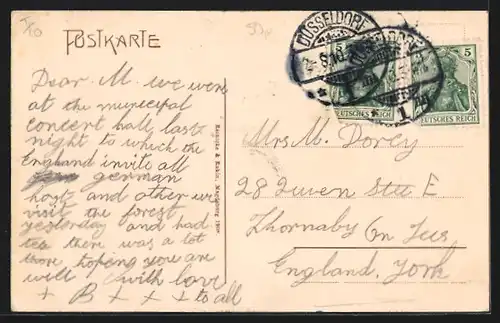 POSTKARTE
Dear M. we were
at the municipal
concert hall last
night to which the
England invite all
german
host and other we
visit the forest
yesterday and had
tea there was a lot
there hoping you are
well with love
+ B + + + to all
Mrs M. Dorey
28 Queen Stre E
Thornaby On Tees
England, York
DÜSSELDORF
1
5
DEUTSCHES REICH
DEUTSCHES REICH